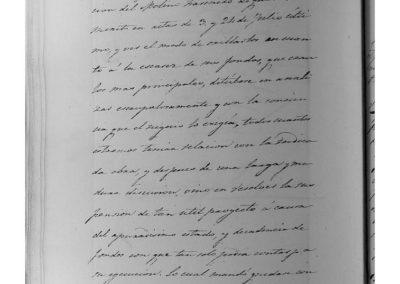 cion del Molin
cionó en actas de 3 y 24 de Julio últi
mo, y ver el modo de zanjarlas en cuan
to á la escasez de sus fondos, que eran
los mas principales, detúvose en anali
zar escrupulosamente y con la concien
cia que el negocio lo exegia, todos cuantos
estremos tenian relacion con la indica
da obra, y despues de una larga y ma
dura discusion, vino en resolver la sus
pension de tan util proyecto á causa
del apuradisimo estado, y decadencia de
fondos con que tan solo podia contar pa
su egecucion. Lo cual mandó quedar con